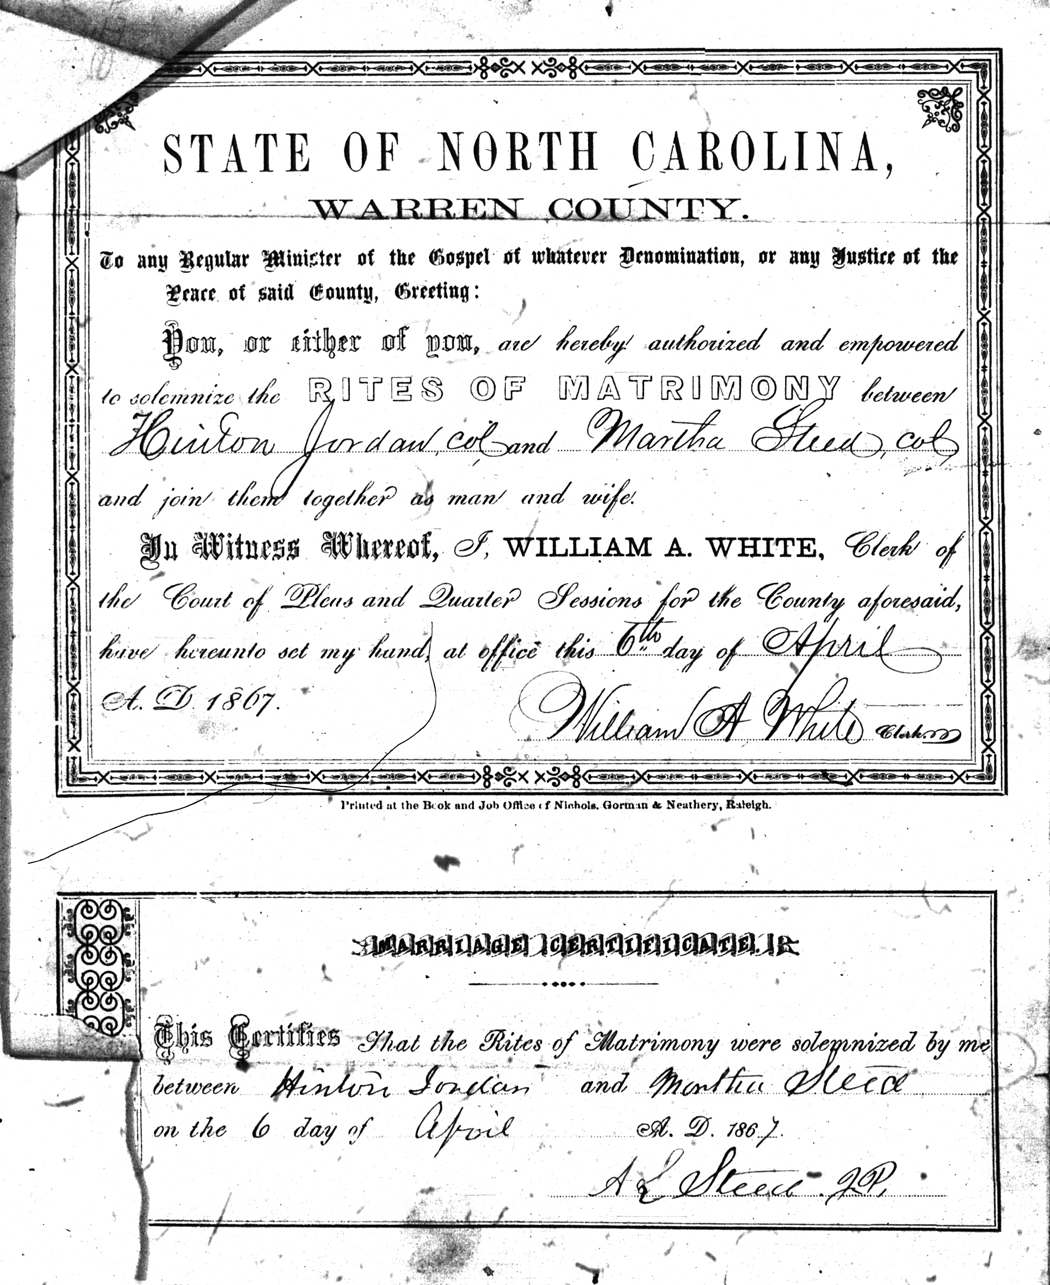 STATE OF NORTH CAROLINA,
WARREN COUNTY.
To any Regular Minister of the Gospel of whatever Denomination, or any Justice of the
Peace of said County, Greeting:
You, or either of you, are hereby authorized and empowered
to solemnize the RITES OF MATRIMONY between
Hinton Jordan, col, and Martha Steed, col,
and join them together as man and wife.
In Witness Whereof, I, WILLIAM A. WHITE, Clerk of
the Court of Pleas and Quarter Sessions for the County aforesaid,
have hereunto set my hand, at office this 6th day of April
A. D. 1867.
William A White Clerk
Printed at the Book and Job Office of Nichols, Gorman & Neathery, Raleigh.
MARRIAGE CERTIFICATE.
This Certifies That the Rites of Matrimony were solemnized by me
between Hinton Jordan and Martha Steed
on the 6 day of April A. D. 1867.
A L Steed JP.